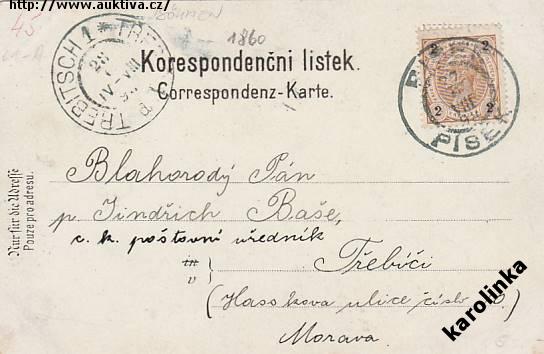 http://www.auktiva.cz/
45
1860
Korespondenční listek.
Correspondenz-Karte.
TREBITSCH 1 *
2 2
2 2
PÍSEK
Nur für die Adresse
Pouze pro adresu.
Blahorodý Pán
p. Jindřich Baše,
c. k. poštovní úředník
in
v
Třebíči
(Hasskova ulice číslo
Morava.
karolinka